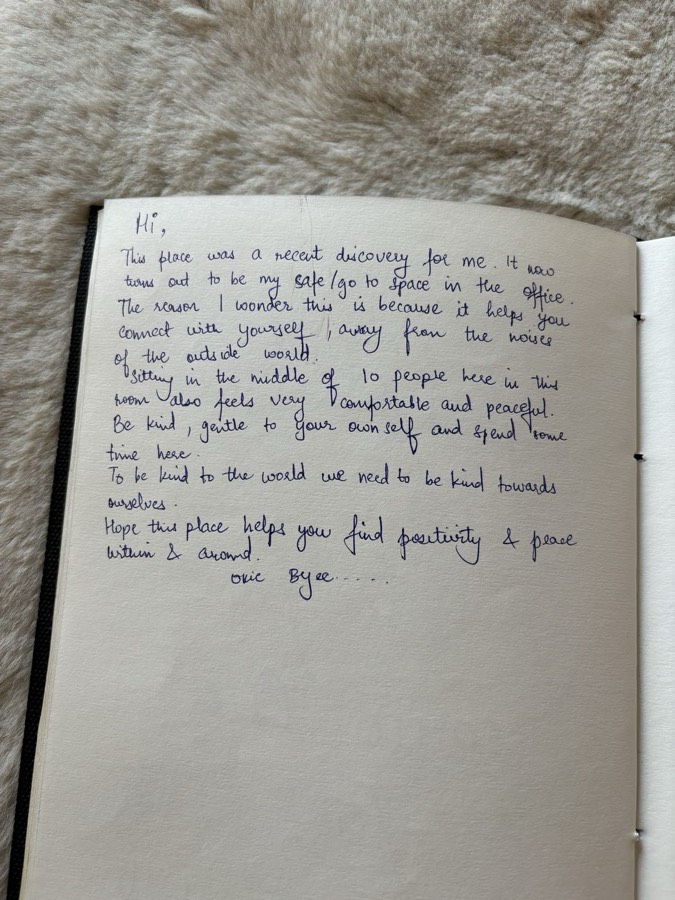 Hi,
This place was a recent discovery for me. It now
turns out to be my safe/go to space in the office.
The reason I wonder this is because it helps you
connect with yourself, away from the noises
of the outside world.
Sitting in the middle of 10 people here in this
room also feels very comfortable and peaceful.
Be kind, gentle to your own self and spend some
time here.
To be kind to the world we need to be kind towards
ourselves.
Hope this place helps you find positivity & peace
within & around.
Okie Byee.....